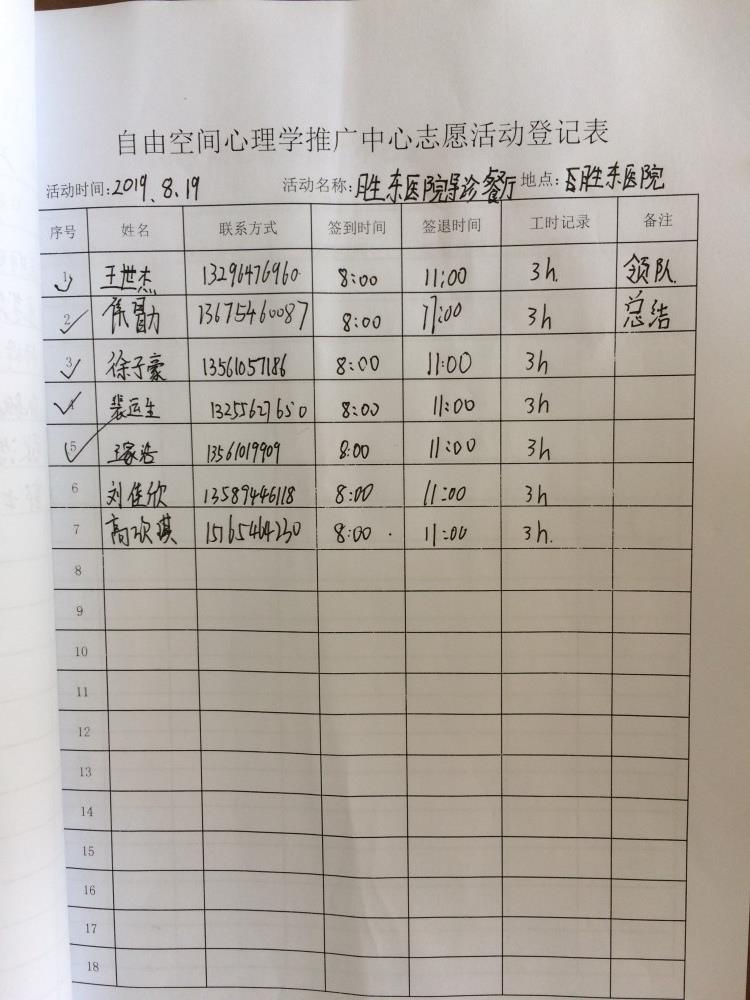 自由空间心理学推广中心志愿活动登记表
活动时间:2019.8.19 活动名称:胜东医院导诊餐厅 地点:胜东医院
序号 姓名 联系方式 签到时间 签退时间 工时记录 备注
1 王世杰 13296476960 8:00 11:00 3h. 领队
2 13675460087 8:00 11:00 3h 总结
3 徐子豪 13561057186 8:00 11:00 3h
4 裴运生 13255627650 8:00 11:00 3h
5 王家浩 13561019909 8:00 11:00 3h
6 刘佳欣 13589446118 8:00 11:00 3h
7 高欣琪 15765464230 8:00 11:00 3h.
8
9
10
11
12
13
14
15
16
17
18